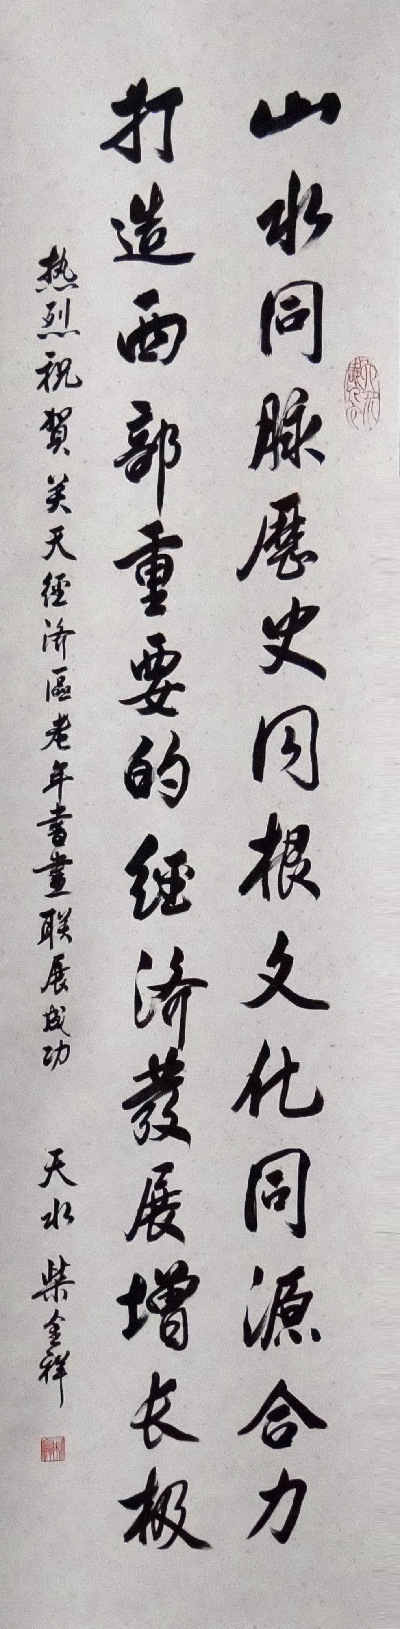 山水同脉歷史同根文化同源合力
打造西部重要的經济發展增长极
热烈祝贺关天經济區老年書畫联展成功
天水 柴全祥